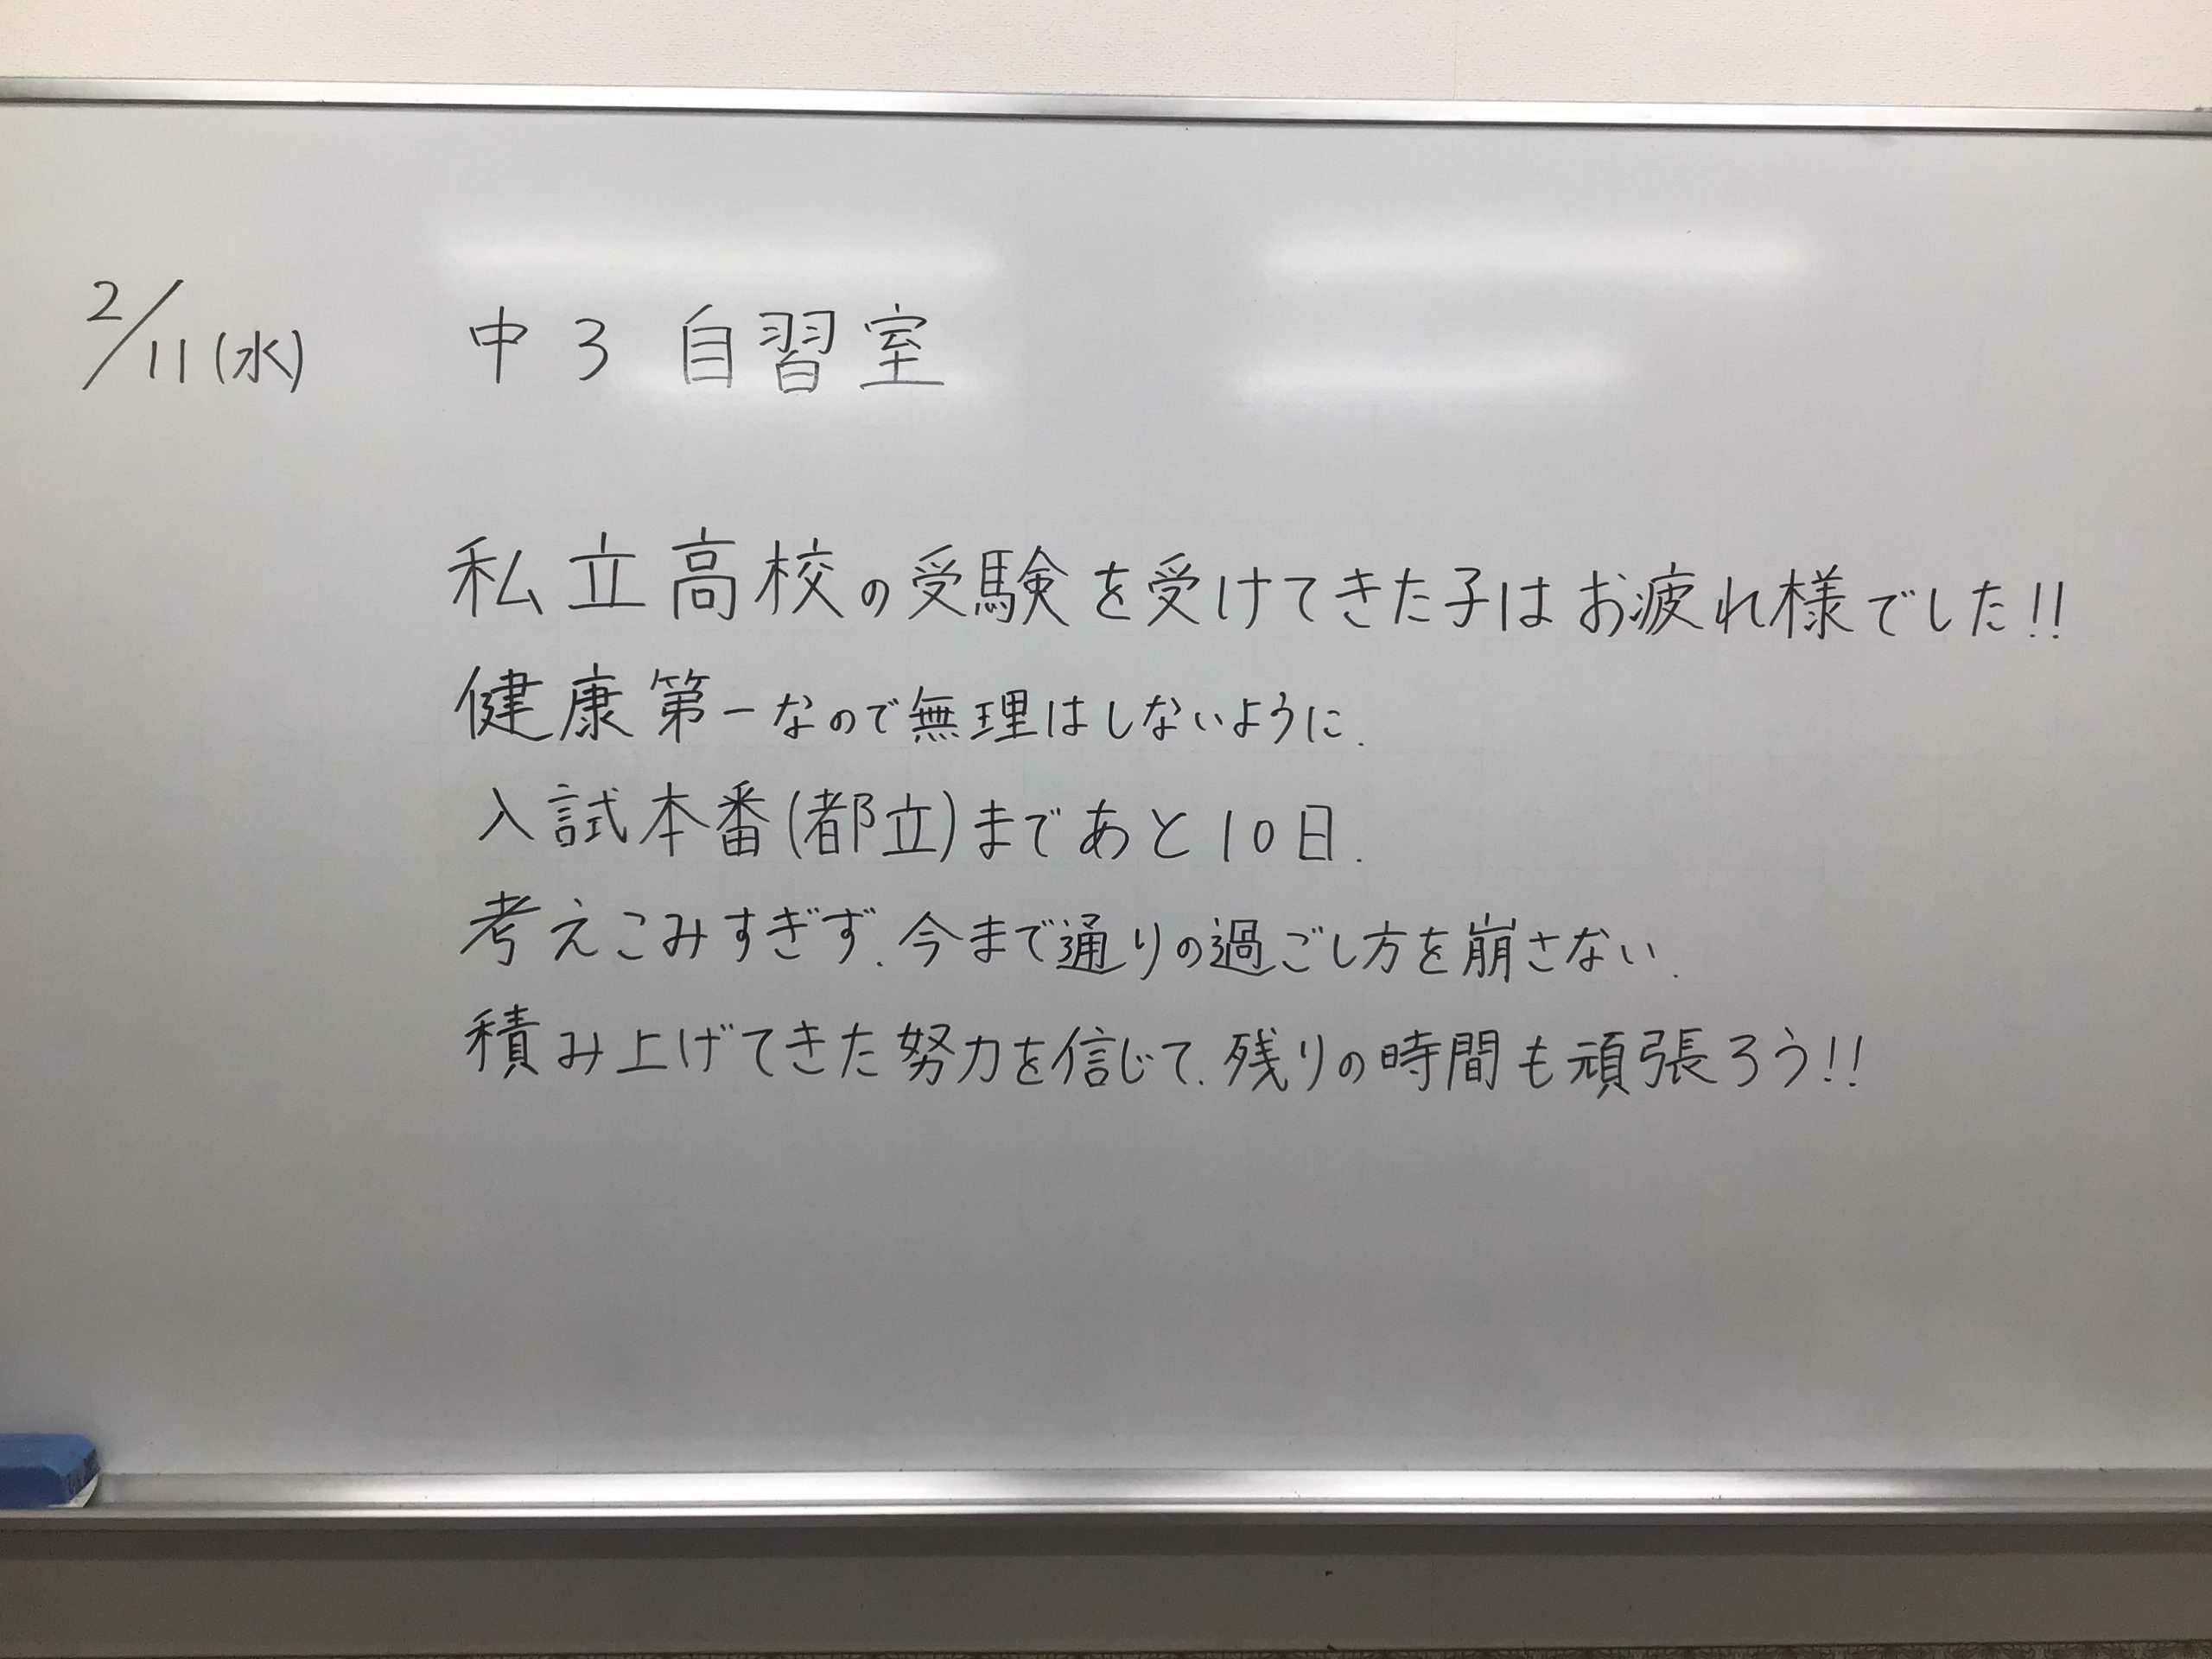 2/11(水) 中3 自習室
私立高校の受験を受けてきた子はお疲れ様でした!!
健康第一なので無理はしないように.
入試本番(都立)まであと10日.
考えこみすぎず.今まで通りの過ごし方を崩さない.
積み上げてきた努力を信じて.残りの時間も頑張ろう!!